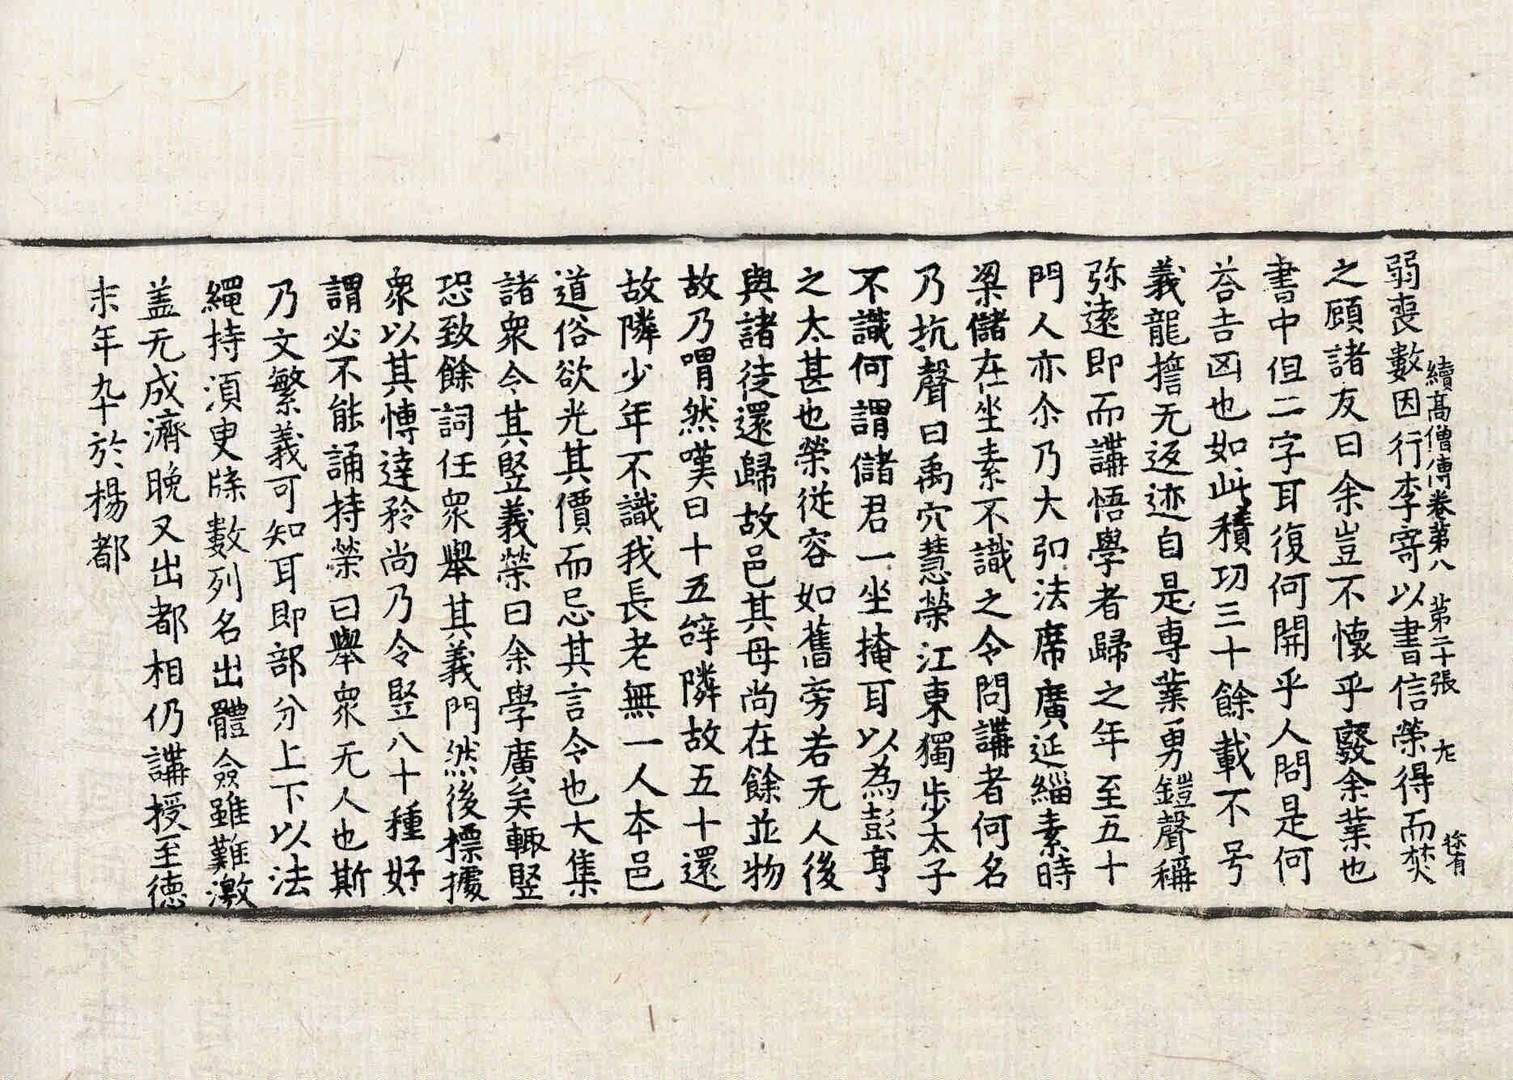 續高僧傳卷第八 第二十張 尤 徐有
弱喪數因行李寄以書信榮得而焚
之顧諸友曰余豈不懷乎癈余業也
書中但二字耳復何開乎人問是何
荅吉凶也如此積功三十餘載不号
義龍擔无返迹自是專業勇鎧聲稱
弥遠即而講悟學者歸之年至五十
門人亦尒乃大弘法席廣延緇素時
梁儲在坐素不識之令問講者何名
乃抗聲曰禹穴慧榮江東獨步太子
不識何謂儲君一坐掩耳以為彭亨
之太甚也榮從容如舊旁若无人後
與諸徒還歸故邑其母尚在餘並物
故乃喟然嘆曰十五辝隣故五十還
故隣少年不識我長老無一人本邑
道俗欲光其價而忌其言令也大集
諸衆令其竪義榮曰余學廣矣輙竪
恐致餘詞任衆舉其義門然後標據
衆以其博達矜尚乃令竪八十種好
謂必不能誦持榮曰舉衆无人也斯
乃文繁義可知耳即部分上下以法
繩持須臾牒數列名出體僉雖難激
盖无成濟晚又出都相仍講授至德
末年卒於楊都